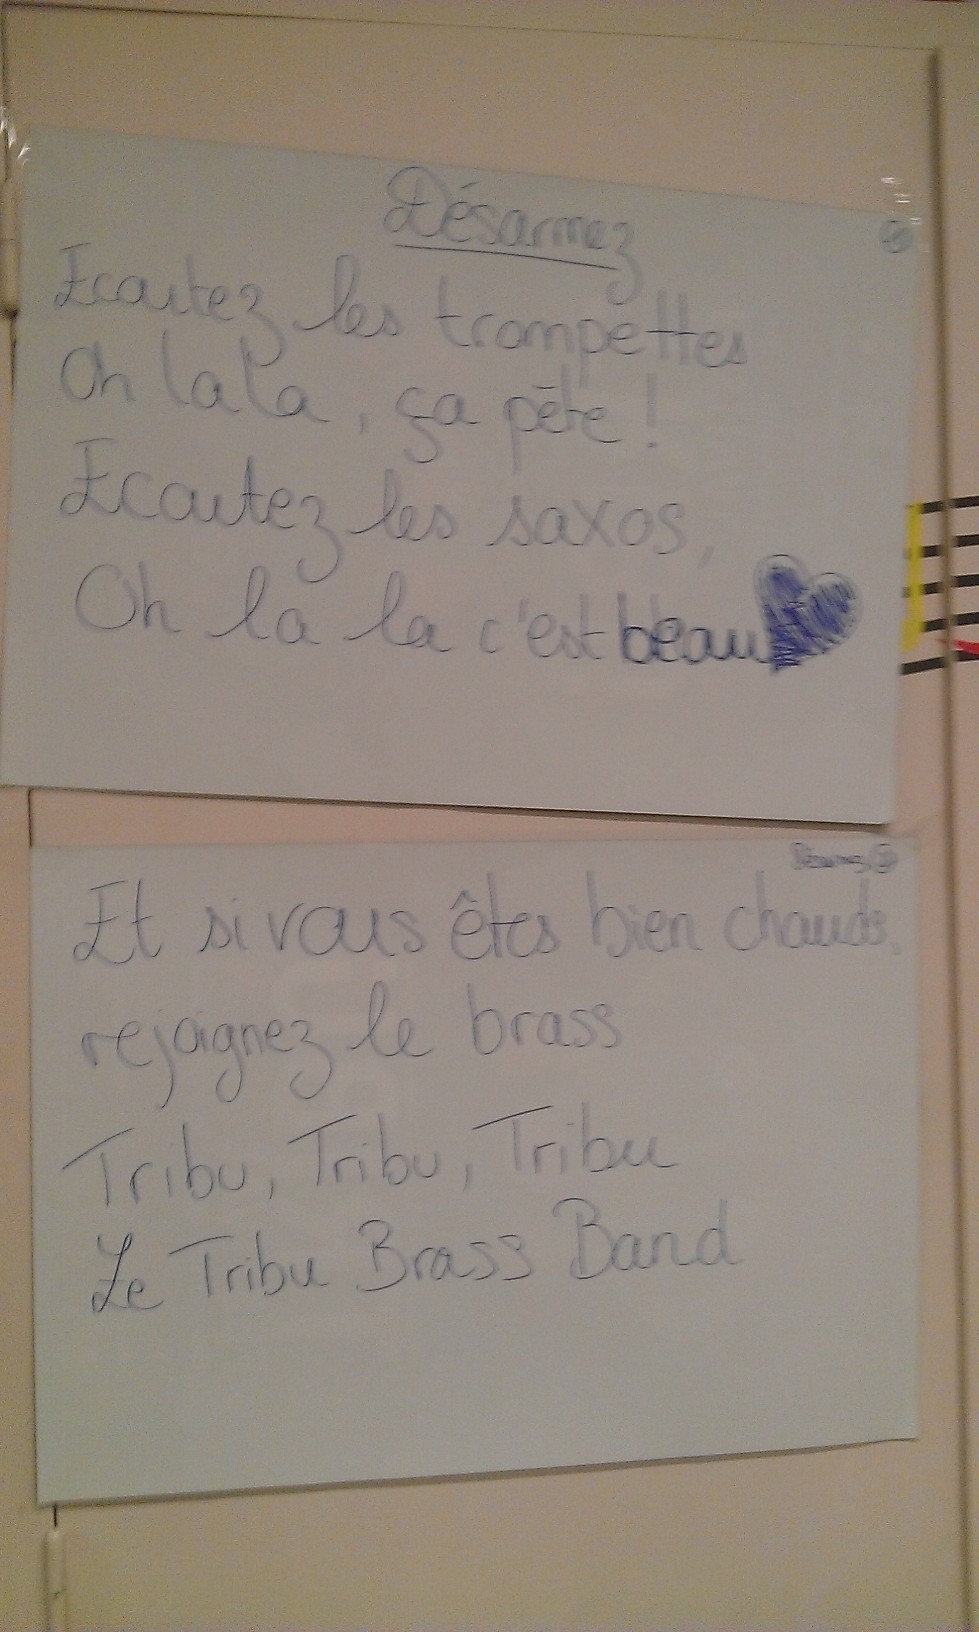 Désarmez
Ecoutez les trompettes
Oh la la, ça pête !
Ecoutez les saxos,
Oh la la c'est beau
Désarmez
Et si vous êtes bien chauds,
rejoignez le brass
Tribu, Tribu, Tribu
Le Tribu Brass Band